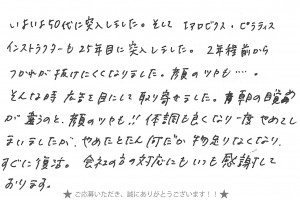 いよいよ50代に突入しました。そして エアロビクス・ピラティス
インストラクターも25年目に突入しました。2年程前から
つかれが抜けにくくなりました。顔のツヤも…。
そんな時 広告を目にして取り寄せました。翌朝の目覚め
が違うのと、顔のツヤも!! 体調も良くなり一度やめてし
まいましたが、やめたとたん何だか物足りなくなり、
すぐに復活。会社の方の対応にもいつも感謝して
おります。
★ご応募いただき、誠にありがとうございます！！★